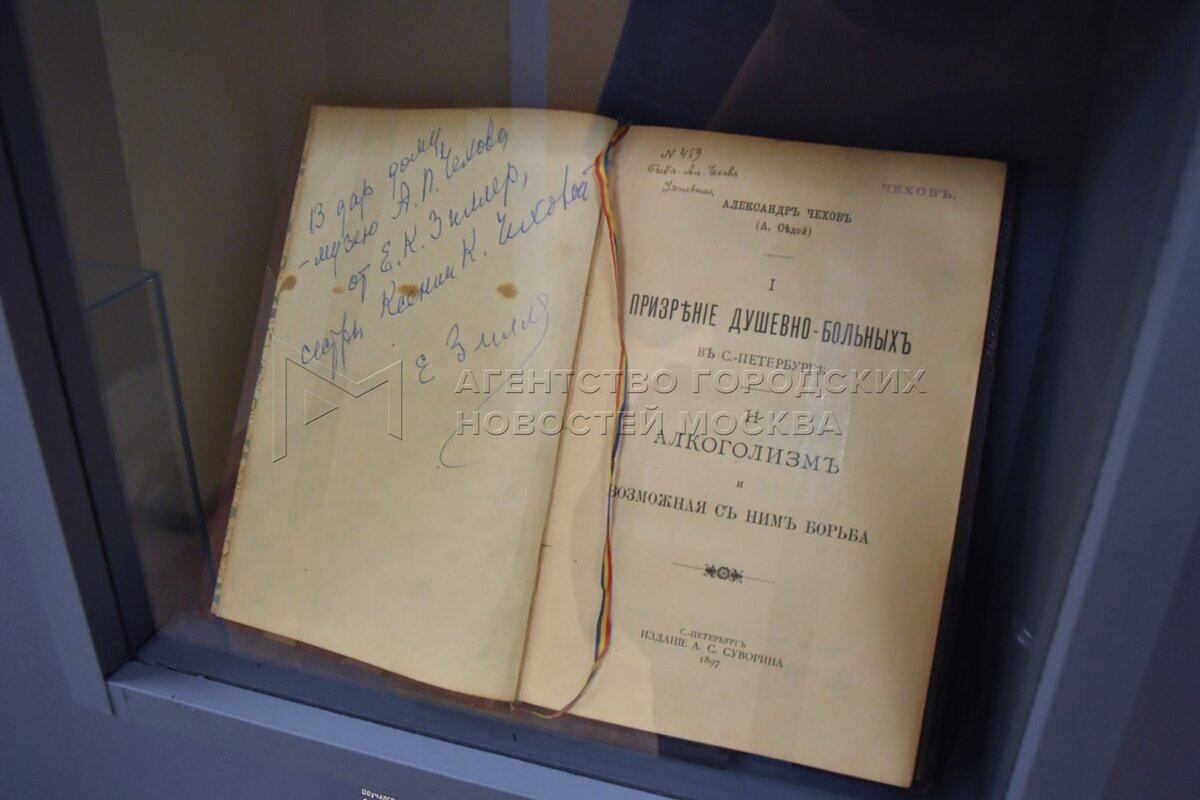 В дар дому
-музею А.П. Чехова
от Е.К. Зиллер,
сестры Ксении К. Чеховой
Е Зилле
N 459
Библ. Ал. Чехова
ЧЕХОВЪ.
АЛЕКСАНДРЪ ЧЕХОВЪ
(А. Сѣдой)
I
ПРИЗРѢНІЕ ДУШЕВНО-БОЛЬНЫХЪ
ВЪ С.-ПЕТЕРБУРГѢ
II
АЛКОГОЛИЗМЪ
и
ВОЗМОЖНАЯ СЪ НИМЪ БОРЬБА
С.-ПЕТЕРБУРГЪ
ИЗДАНІЕ А. С. СУВОРИНА
1897
АГЕНТСТВО ГОРОДСКИХ
НОВОСТЕЙ МОСКВА